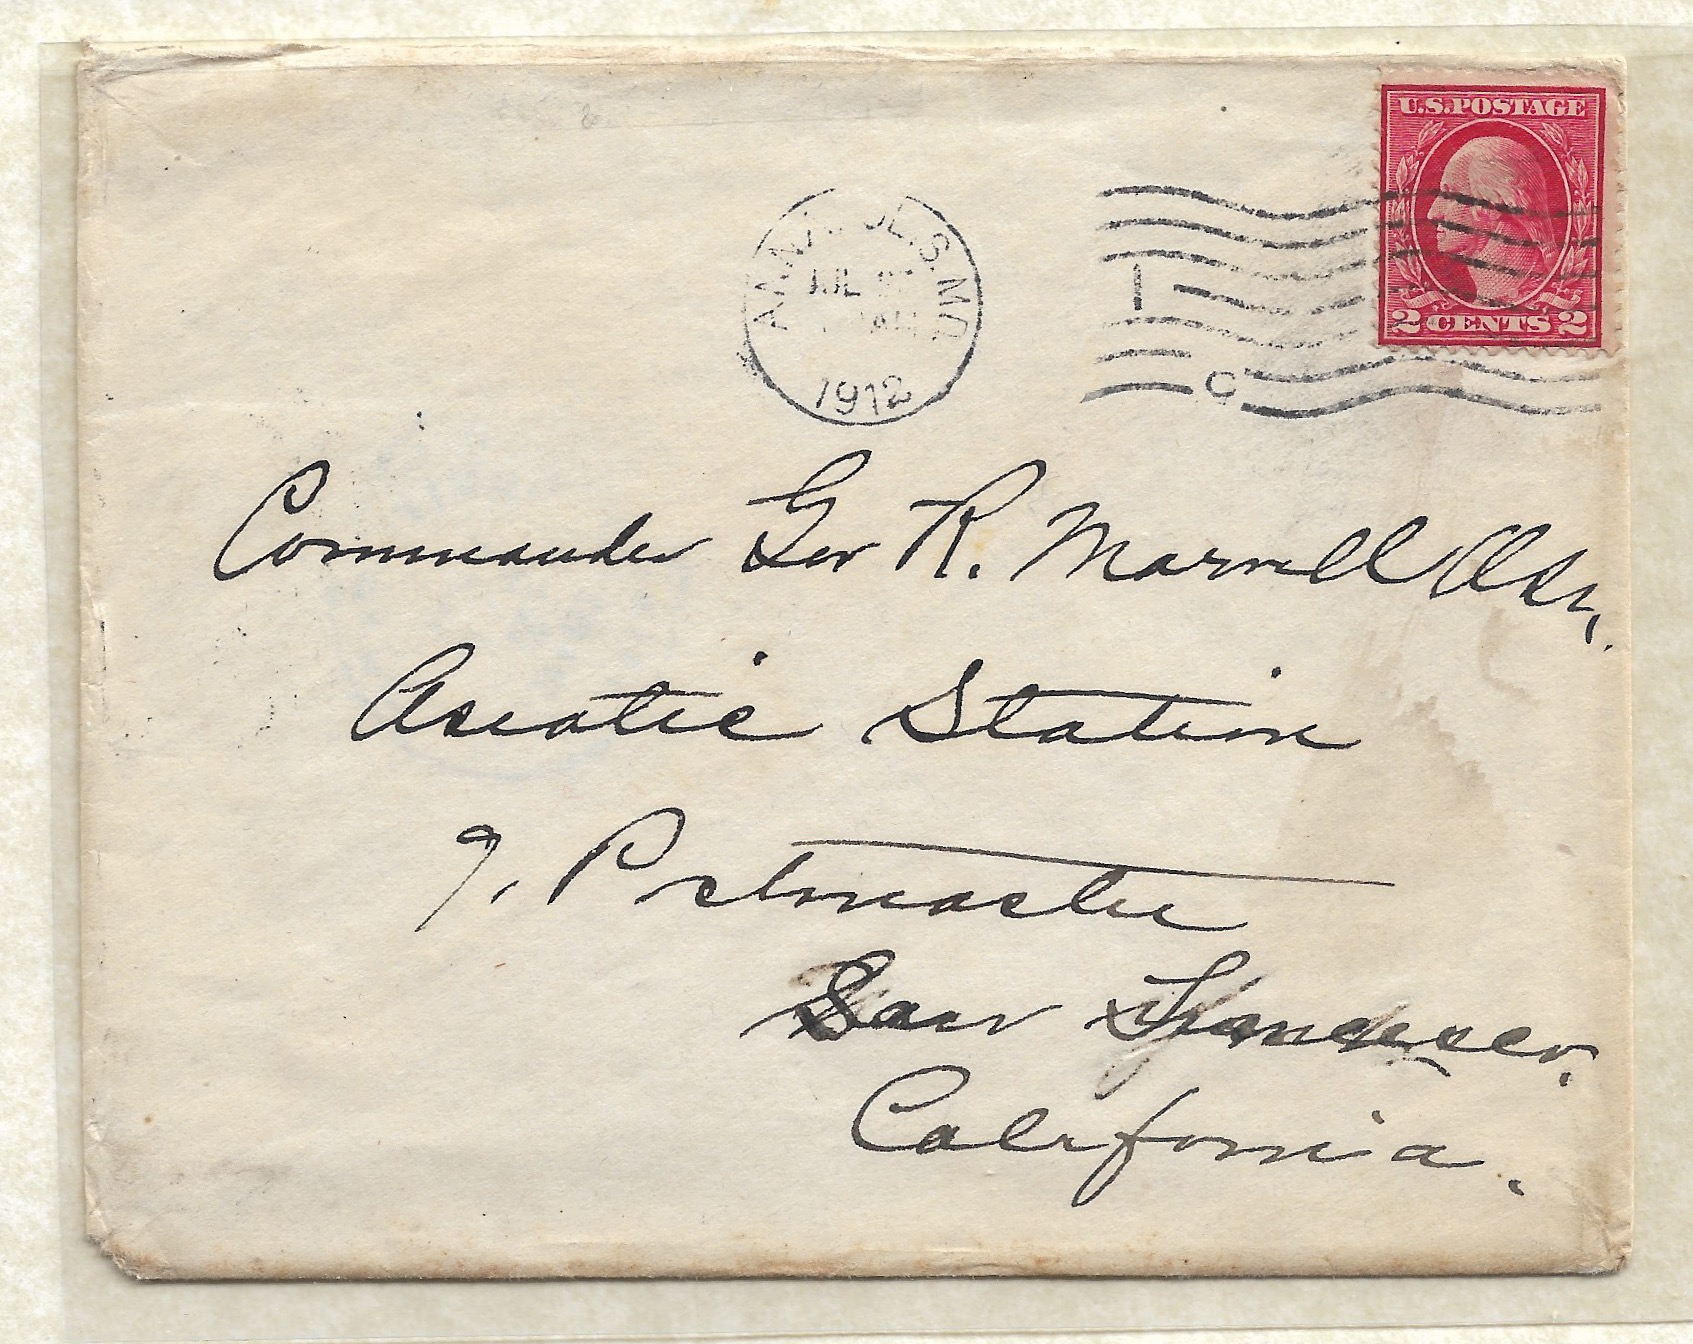 U.S. POSTAGE
2 CENTS 2
ANNAPOLIS. MD.
JUL
AM
1912
1
C
Commander Geo R. Marvell USN,
Asiatic Station
Postmaster
San Francisco,
California.